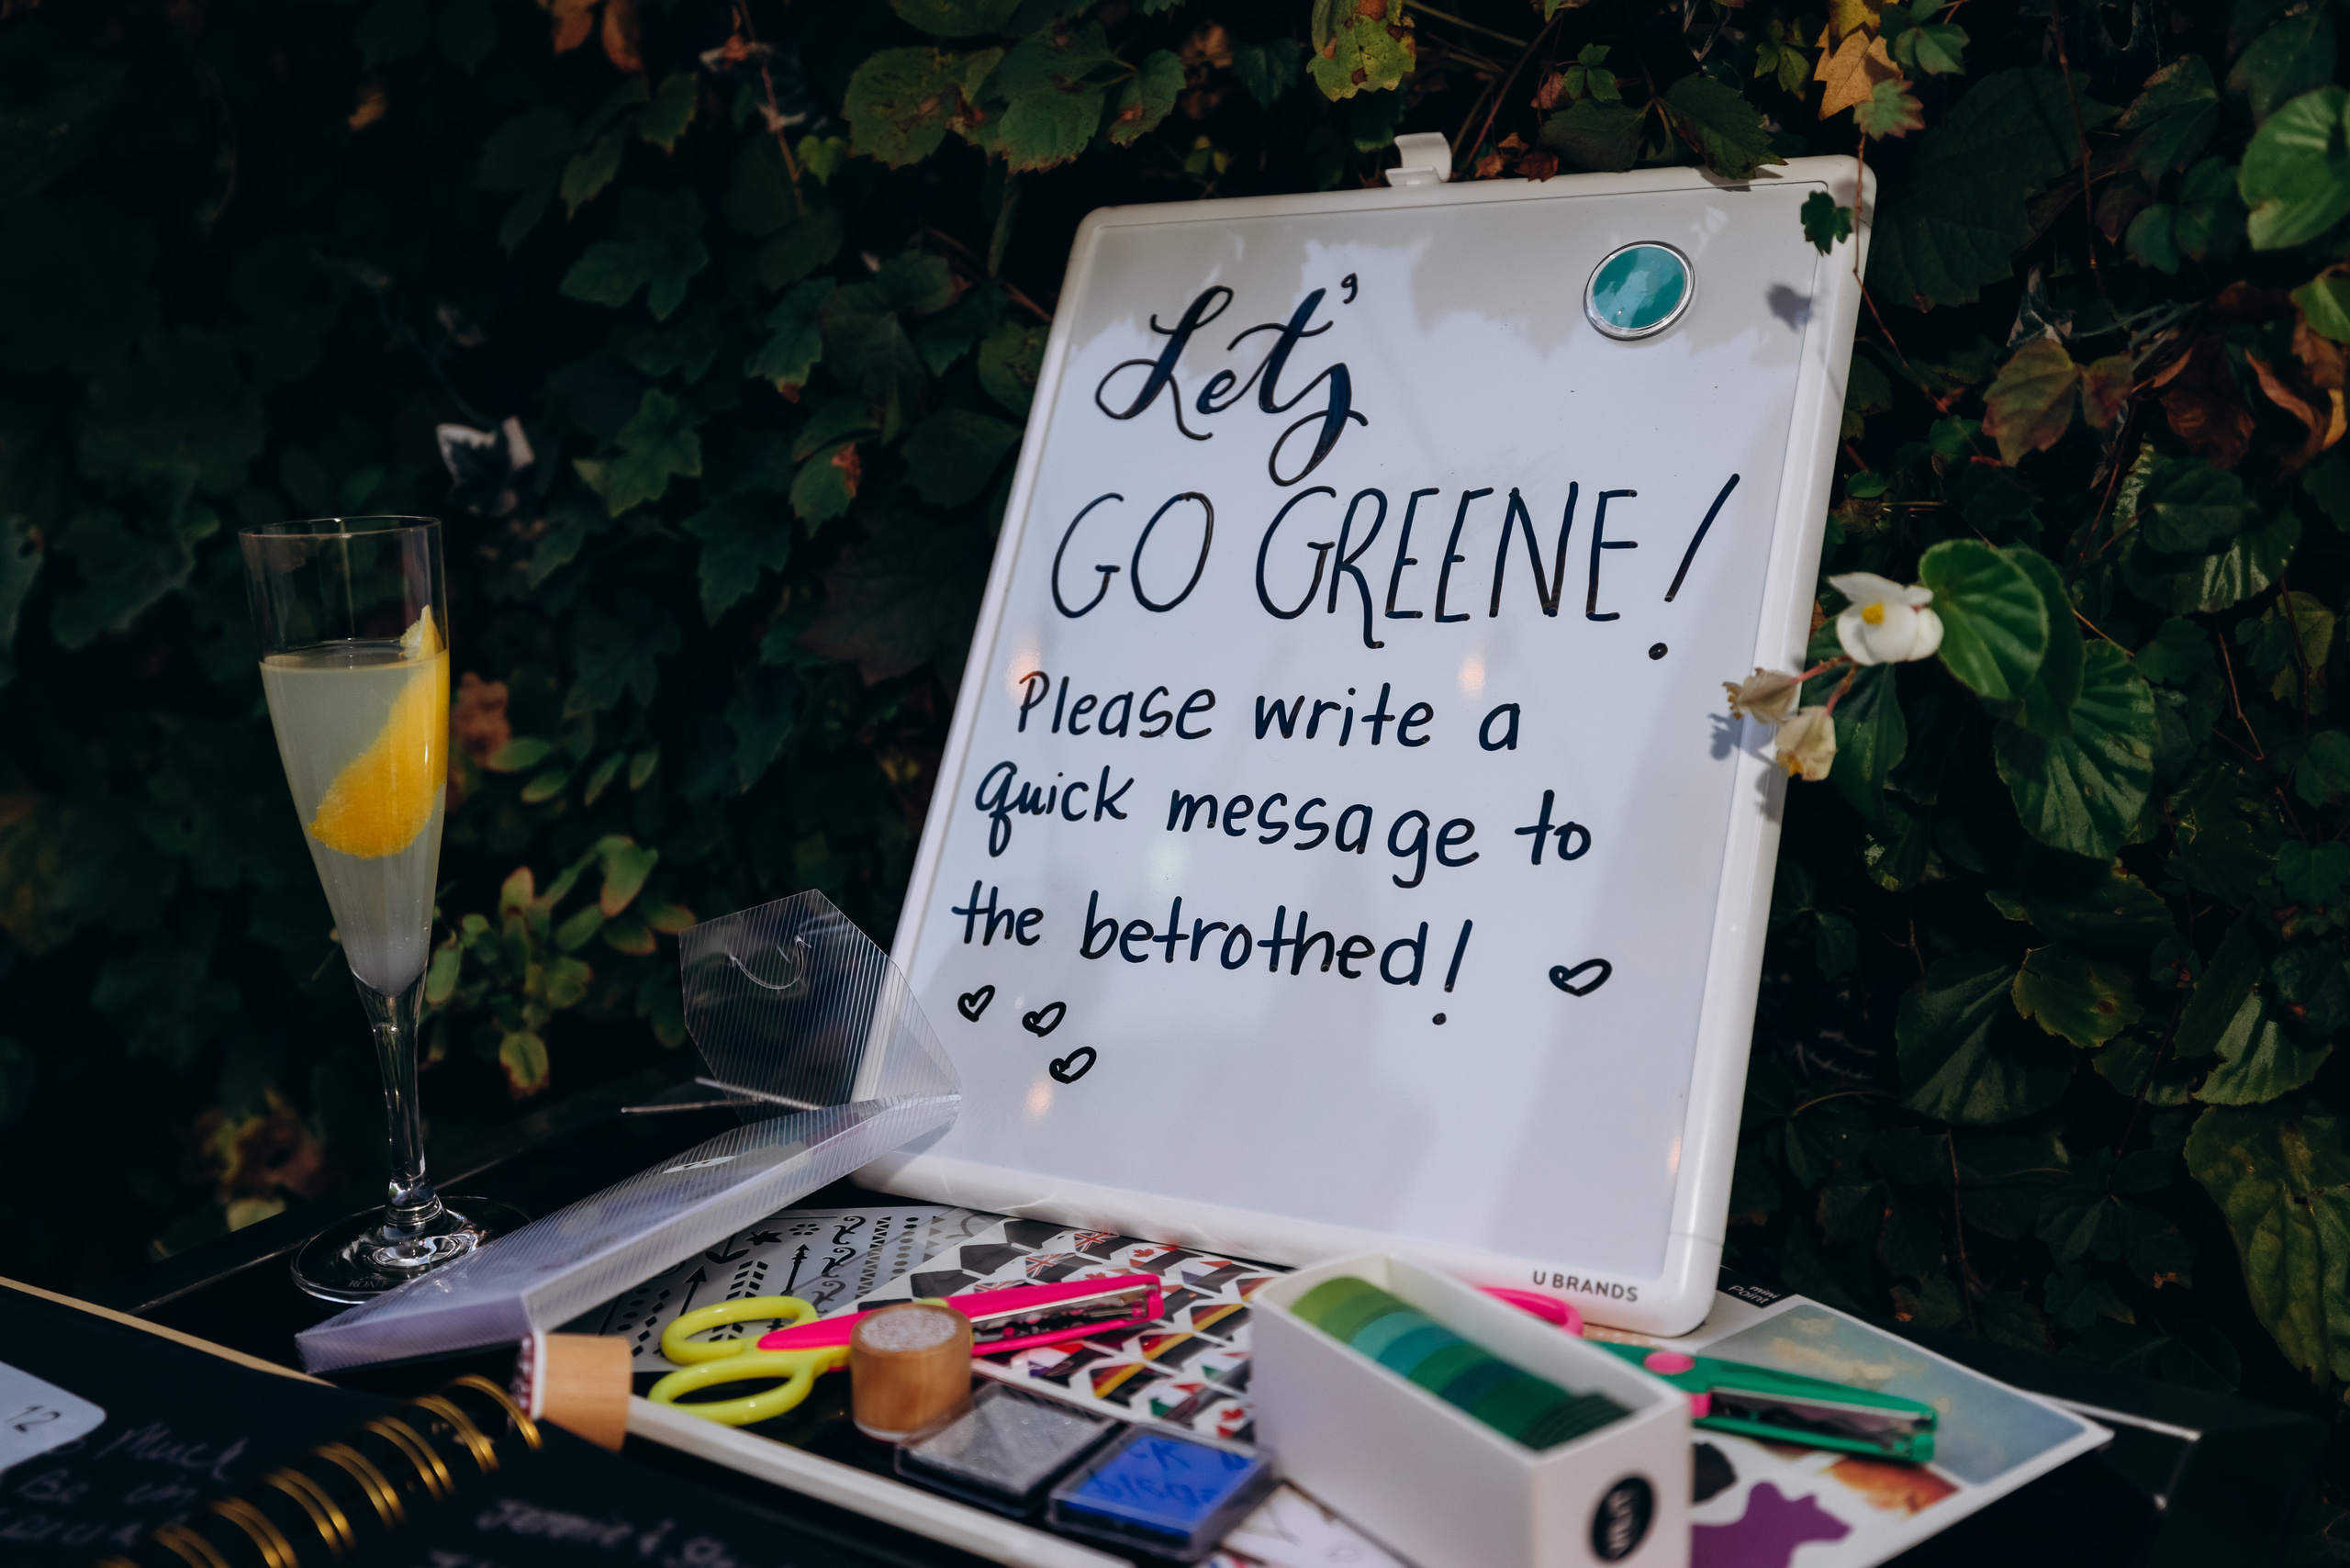 Let's
GO GREENE!
Please write a
quick message to
the betrothed!
U BRANDS
mini
Point
12
Much
Be in